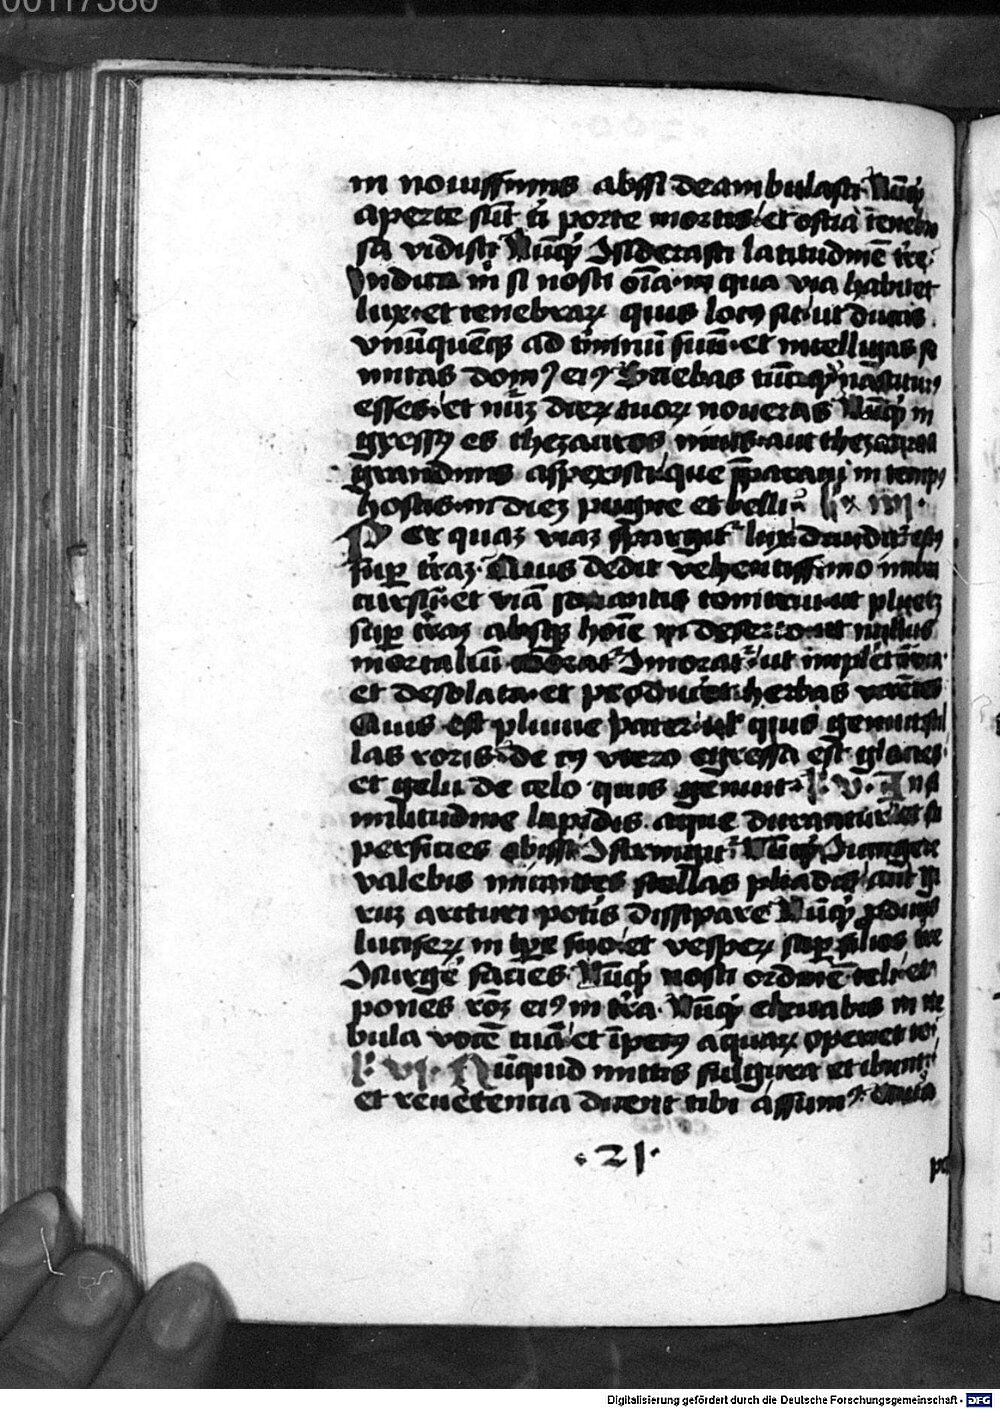 00117380
in nouissimis abissi deambulasti Nūqͥd
aperte sūt tͥ porte mortis et ostia tenebro
sa vidisti Nūqͥd ɔsiderasti latitudinē tͬre
Indica mͥ si nosti oīa in qua via habitet
lux et tenebraꝝ quis locus sit ut ducas
vnūquēqꝫ ad tͥminū suū et intelligas se
mitas domꝰ eiꝰ Sciebas tūc qͥ nasciturꝰ
esses et nūꝫ dieꝝ tuoꝝ noueras Nūqͥd in
gressꝰ es thezauros niuis aut thezauros
grandinis aspexisti que p̄paraui in tempꝰ
hostis in dieꝫ pugne et belli
Per quaꝫ viaꝫ spargitͬ lux diuiditͬ estꝰ
suꝑ tͬraꝫ Quis dedit vehementissimo imbri
cursū et viā sonantis tonitrui ut plueꝫ
suꝑ tͬraꝫ absqꝫ hoīe in deserto ubi nullus
mortaliū ɔmoratͬ ut impleret
et desolata et produceret herbas virētes
Quis est pluuie pater uel quis genuit stil
las roris de cꝰ vtero egressa est glacies
et gelu de celo quis genuit l. v. In si
militudine lapidis aque durantur et su
perficies abissi ɔstringitͬ Nūqͥd ɔiungere
valebis micantes stellas pliadis aut gi
ruꝫ arcturi potis dissipare Nūqͥd ꝓducis
luciferꝝ in tꝑe suo et vesperꝝ suꝑ filios tͬre
ɔsurgeͬ facies Nūqͥd nosti ordinē celi et
pones rōꝫ eiꝰ in tͬra Nūqͥd eleuabis in ne
bula vocē tuā et īpetꝰ aquaꝝ operiet te
l. vi. Nūquid mittis fulgura et ibunt
et reuertentia dicent tibi assumꝰ
.21.
Digitalisierung gefördert durch die Deutsche Forschungsgemeinschaft - DFG